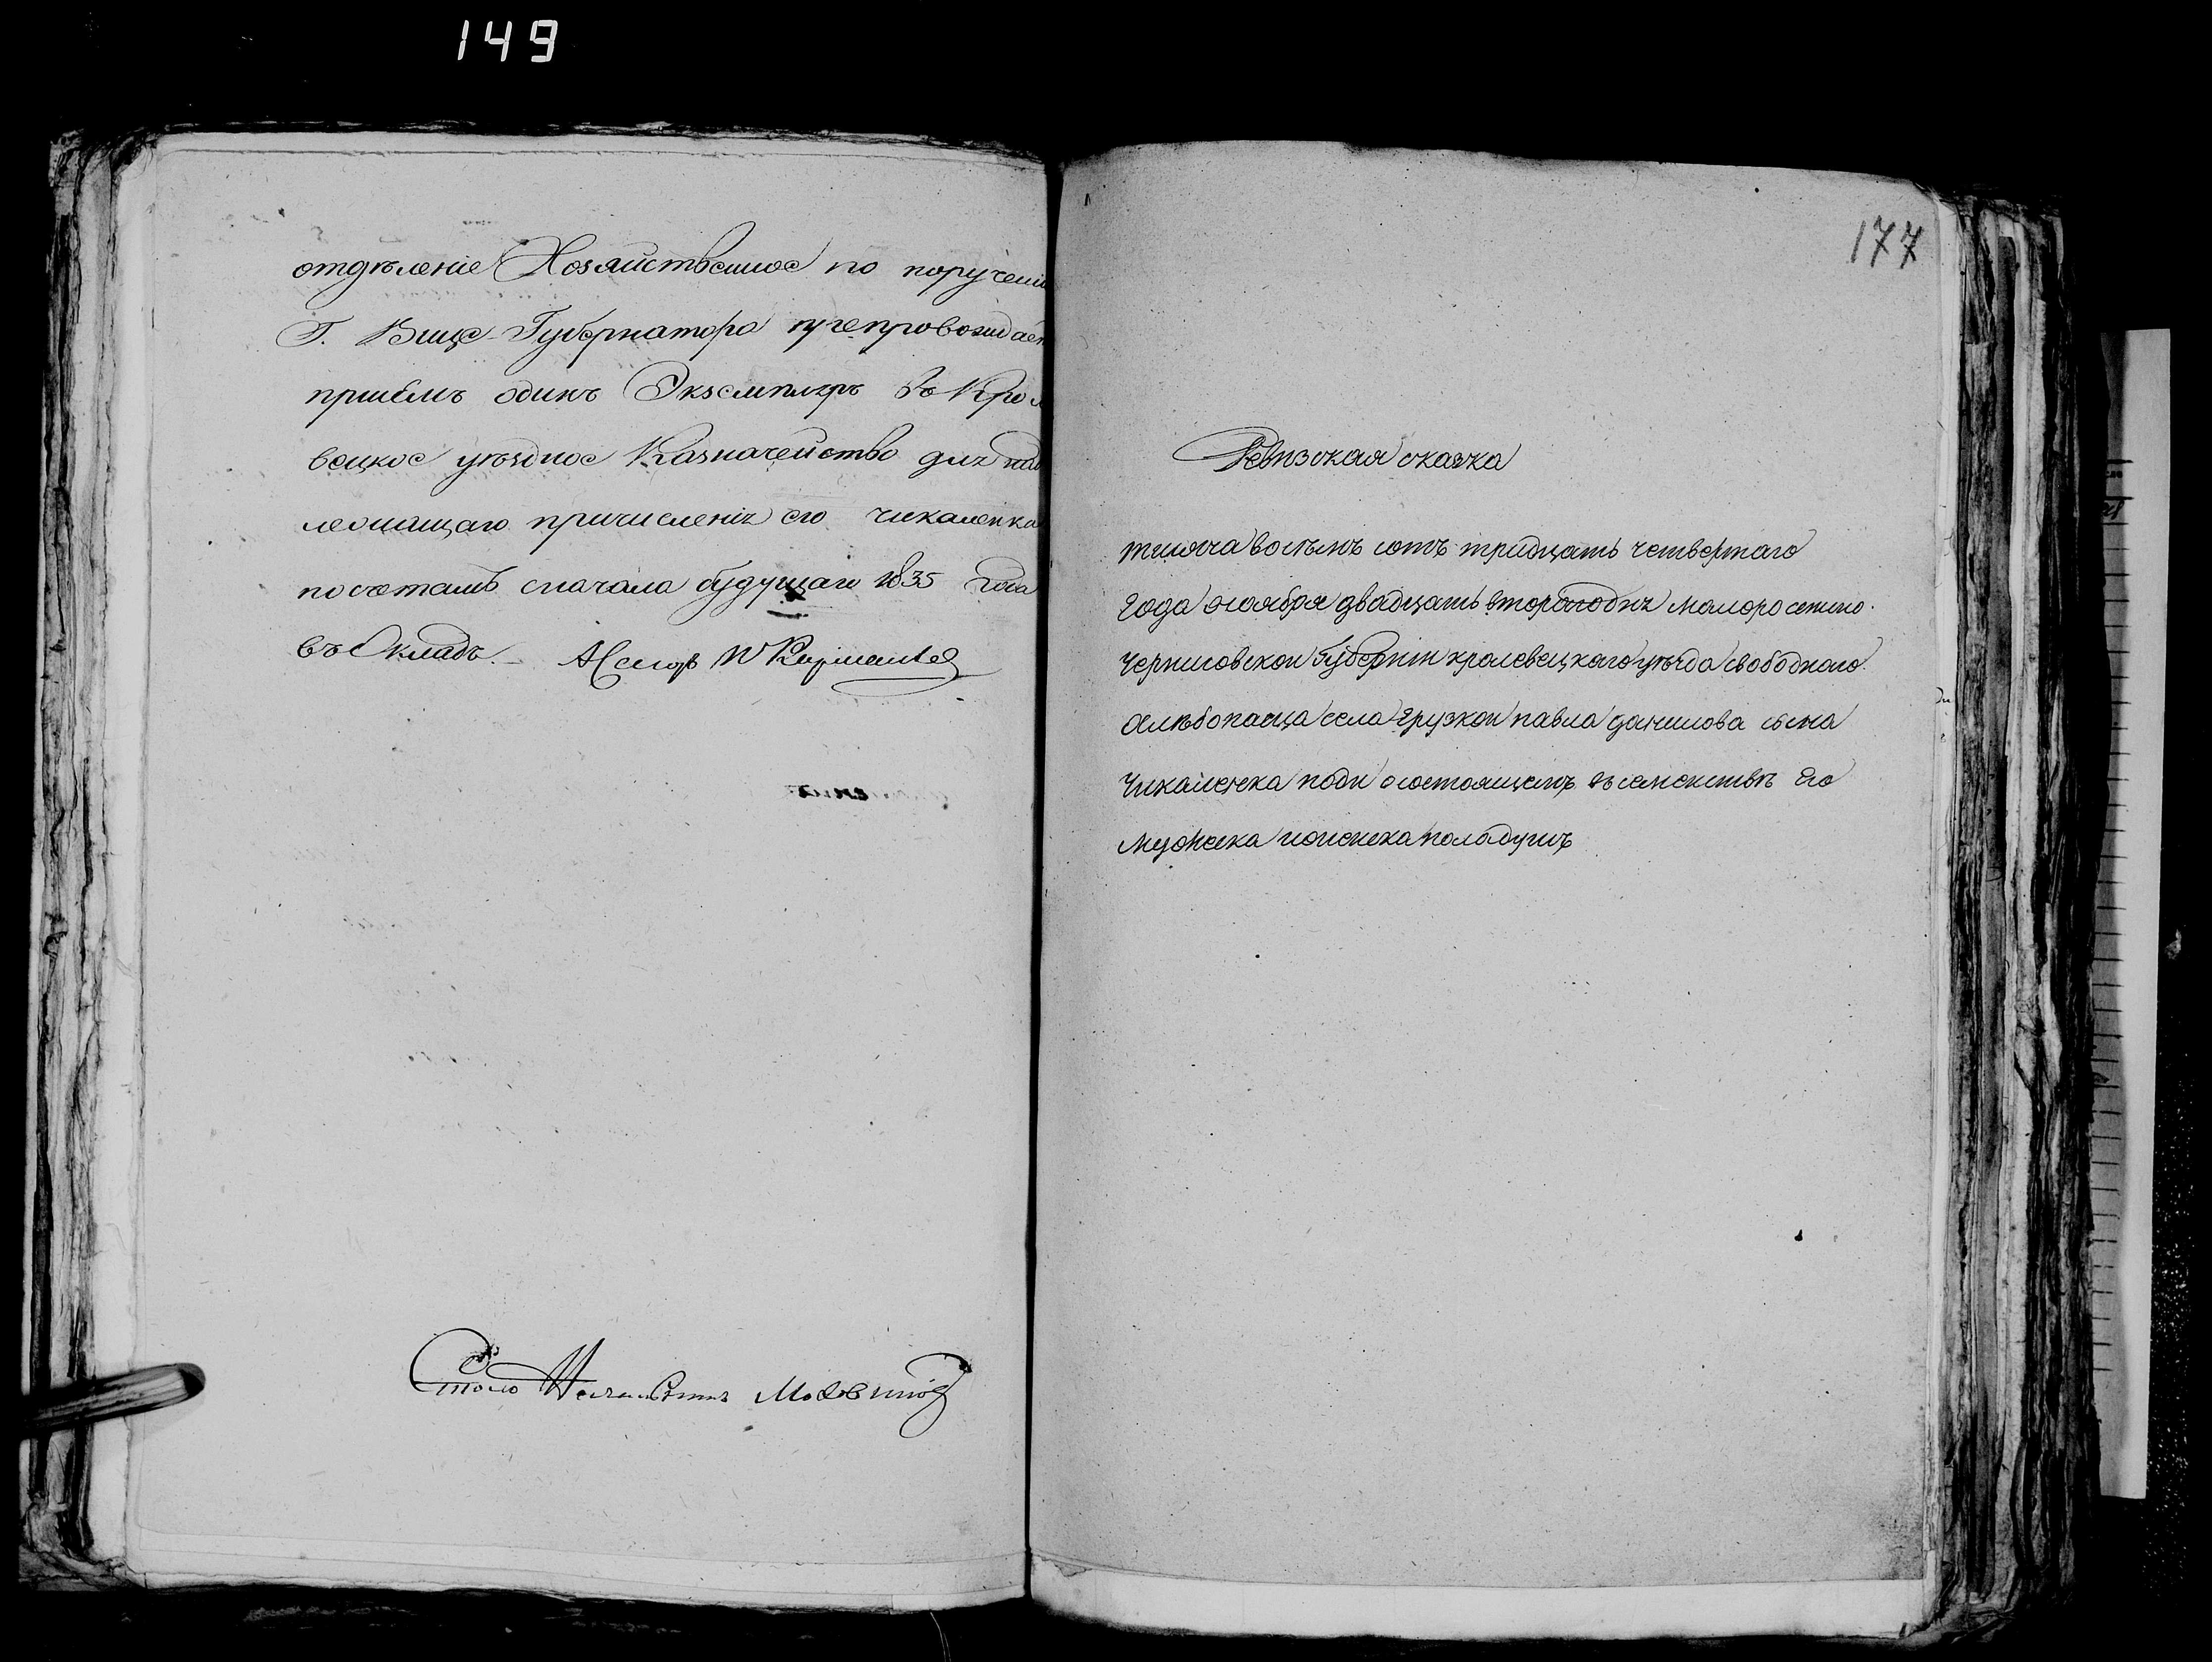 149
отдѣленіе Хозяйственное по порученію
Г. Вице-Губернатора препровождает
приёмъ одинъ Экземпляръ въ Кроле
вецкое уѣздное Казначейство для над
лежащаго причисленія его Чикаленка
по счетамъ сначала будущаго 1835 года
въ Окладъ.
Столо Начальникъ
177
Ревизская сказка
тысяча восѣмъ сотъ тридцать четвертаго
года ноября двадцать второго дня Малоросейско
Черниговской Губерніи кролевецкаго уѣзда свободнаго
хлѣбопашца села грузкой павла данилова сына
Чикаленка подн состоящемъ въ семействѣ его
мужеска и женска пола душъ